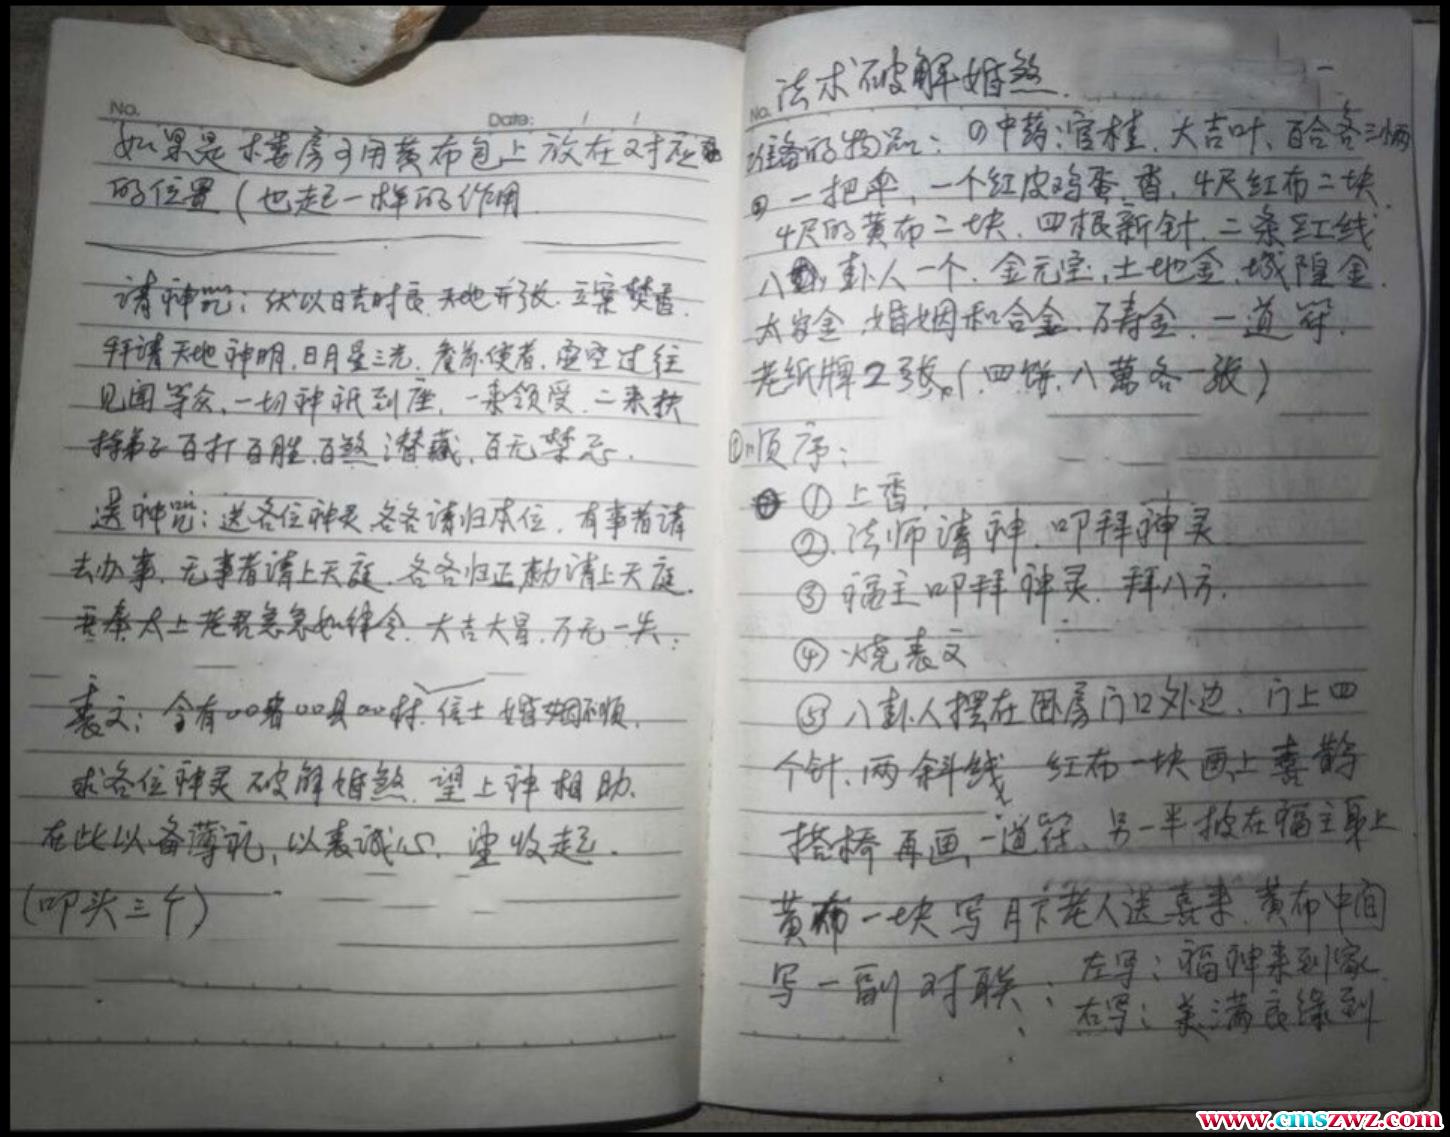 No.
Date: / /
如果是楼房可用黄布包上放在对应
的位置(也起一样的作用
请神咒:伏以日吉时良.天地开张.立案焚香.
拜请天地神明,日月星三光.虚空过往
见闻等众,一切神祇到座,一来领受.二来扶
持弟子百打百胜.百煞潜藏,百无禁忌.
送神咒:送各位神灵.各各请归本位.有事者请
去办事.无事者请上天庭.各各归正,请上天庭.
吾奉太上老君急急如律令.大吉大昌.万无一失.
表文:今有○○省○○县○○村.信士婚姻不顺.
求各位神灵破解婚煞.望上神相助.
在此以备薄礼,以表诚心.望收起.
(叩头三个)
No. 法术破解婚煞.
准备的物品:中药:官桂.大吉叶、百合各三两
一把伞,一个红皮鸡蛋,香,4尺红布二块.
4尺的黄布二块.四根新针.二条红线
八卦人一个.金元宝,土地金.城隍金.
太岁金.婚姻和合金.万寿金.一道符.
老纸牌2张.(四饼.八萬各一张)
顺序:
①上香.
②.法师请神.叩拜神灵
③福主叩拜神灵.拜八方.
④烧表文
⑤八卦人摆在卧房门口外边.门上四
个针.两斜线 红布一块画上喜鹊
搭桥再画一道符、另一半披在福主身上
黄布一块写月下老人送喜来.黄布中间
写一副对联:左写:福神来到家.
右写:美满良缘到
www.cmszwz.com